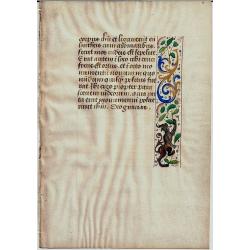 corpus ihu et ligauerunt
lintheis cum aromatibus
sicut mos iudeis est sepelire
Erat autem in loco ubi cruci
fixus est ortus. et in orto mo
numentum nouum in quo
nondum quisquam positus fue
rat Ibi ergo propter para
sceuen iudeorum. quia iux
ta erat monumentum posue
runt ihm. Deo gracias.